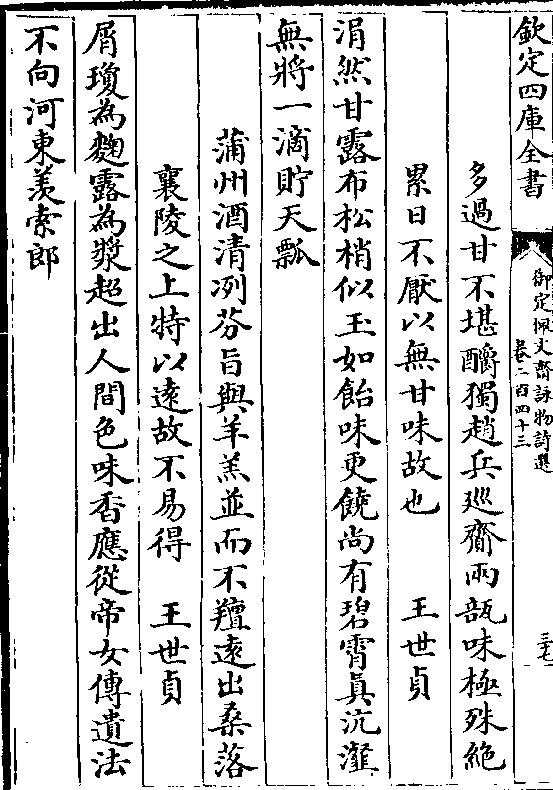 欽定四庫全書
御定佩文齋詠物詩選
卷二百四十三
三七
多過甘不堪釂獨趙兵廵齎兩瓿味極殊絶
累日不厭以無甘味故也　王世貞
涓然甘露布松梢似玉如飴味更饒尚有碧霄真沆瀣
無將一滴貯天瓢
蒲州酒清冽芬旨與羊羔並而不羶遠出桑落
襄陵之上特以遠故不易得　王世貞
屑瓊為麴露為漿超出人間色味香應從帝女傳遺法
不向河東羨索郎